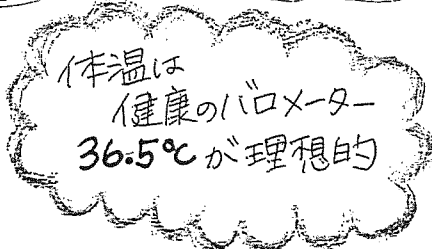 体温は
健康のバロメーター
36.5℃が理想的